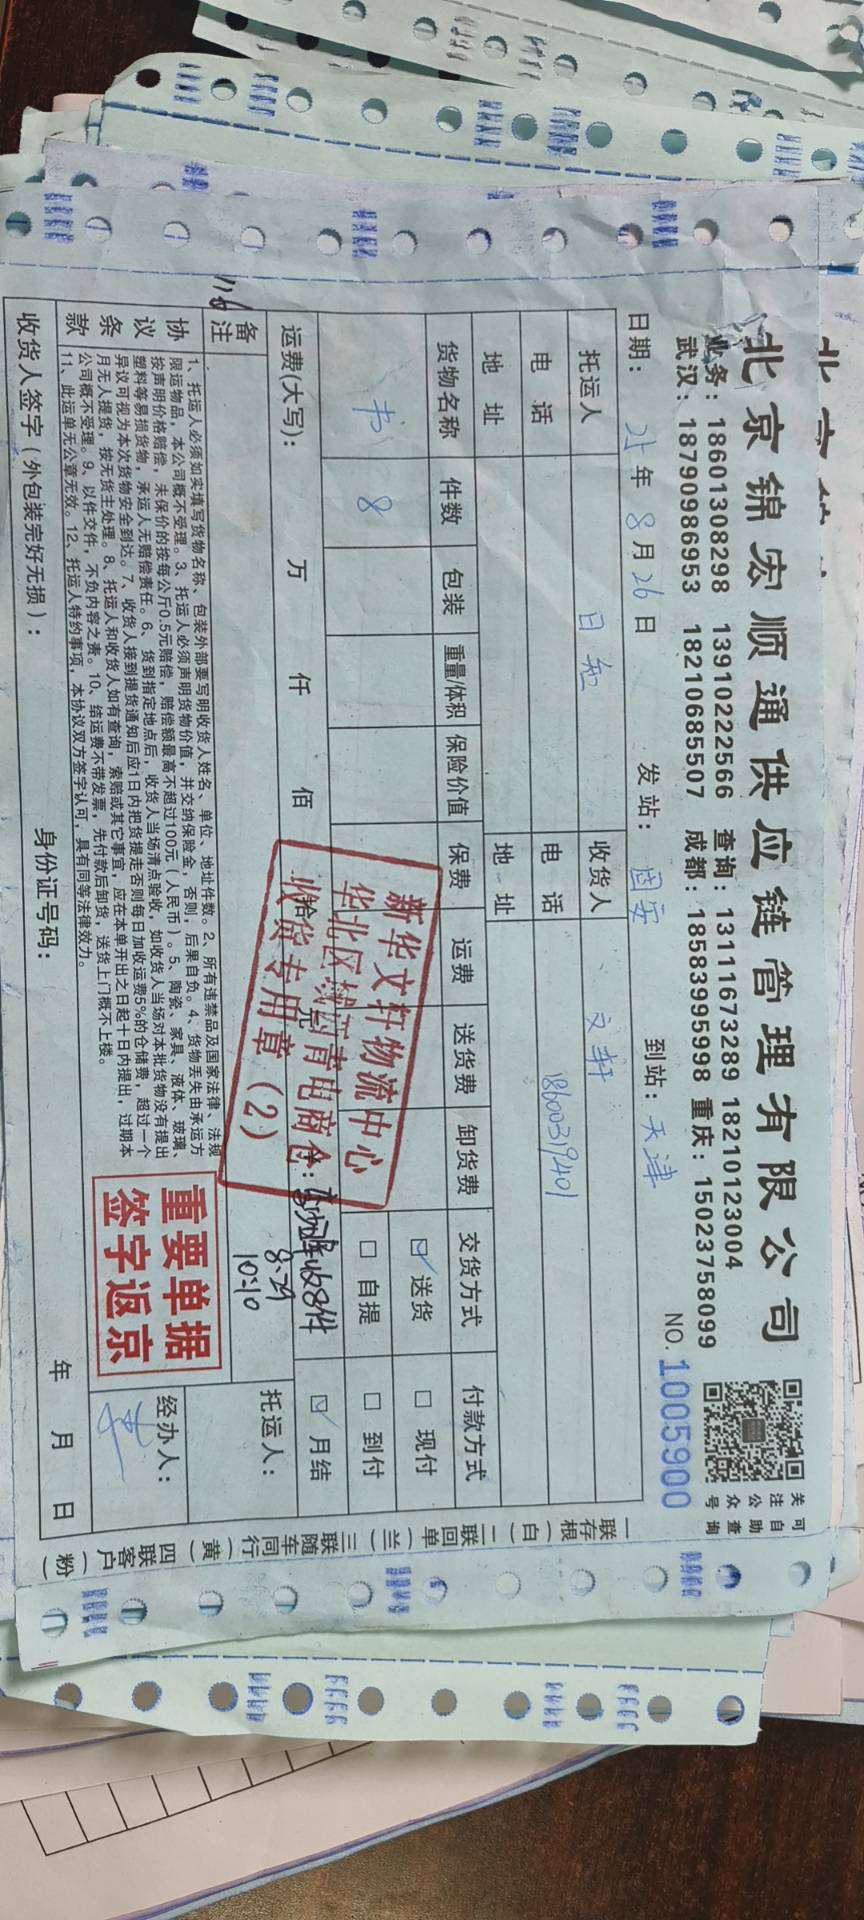 北京锦宏顺通供应链管理有限公司
业务：18601308298 13910222566 查询：13111673289 18210123004
武汉：18790986953 18210685507 成都：18583995998 重庆：15023758099
关注公众号
可自助查询
日期：25年8月26日 发站：固安 到站：天津 NO.1005900
托运人 日知 收货人 文轩
电话 电话 1860039401
地址 地址
货物名称 件数 包装 重量/体积 保险价值 保费 运费 送货费 卸货费 交货方式 付款方式
书 8 ☑送货 □现付
□自提 □到付
运费(大写)： 万 仟 佰 拾 元 ☑月结
收8件
8.29
10:10
新华文轩物流中心
收货专用章（2）
备注
托运人：
协议条款
1、托运人必须如实填写货物名称、包装外部要写明收货人姓名、单位、地址件数。2、所有违禁品及国家法律、法规
限运物品，本公司概不受理。3、托运人必须声明货物价值，并交纳保险金，否则，后果自负。4、货物丢失由承运方
按声明价格赔偿，未保价的按每公斤0.5元赔偿，赔偿额最高不超过100元（人民币）。5、陶瓷、家具、液体、玻璃、
塑料等易损货物，承运人无赔偿责任。6、货到指定地点后，收货人当场清点验收，如收货人当场对本批货物没有提出
异议可视为本次货物安全到达。7、收货人接到提货通知后应1日内把货提走否则每日加收运费5%的仓储费，超过一个
月无人提货，按无货主处理。8、托运人和收货人如有查询，索赔或其它事宜，应在本单开出之日起十日内提出，过期本
公司概不受理。9、以件交件，不负内容之责。10、结运费不带发票，先付款后卸货，送货上门概不上楼。
11、此运单无公章无效。12、托运人特约事项，本协议双方签字认可，具有同等法律效力。
重要单据
签字返京
经办人：
收货人签字（外包装完好无损）： 身份证号码： 年 月 日
一联存根（白） 二联回单（兰） 三联随车同行（黄） 四联客户（粉）